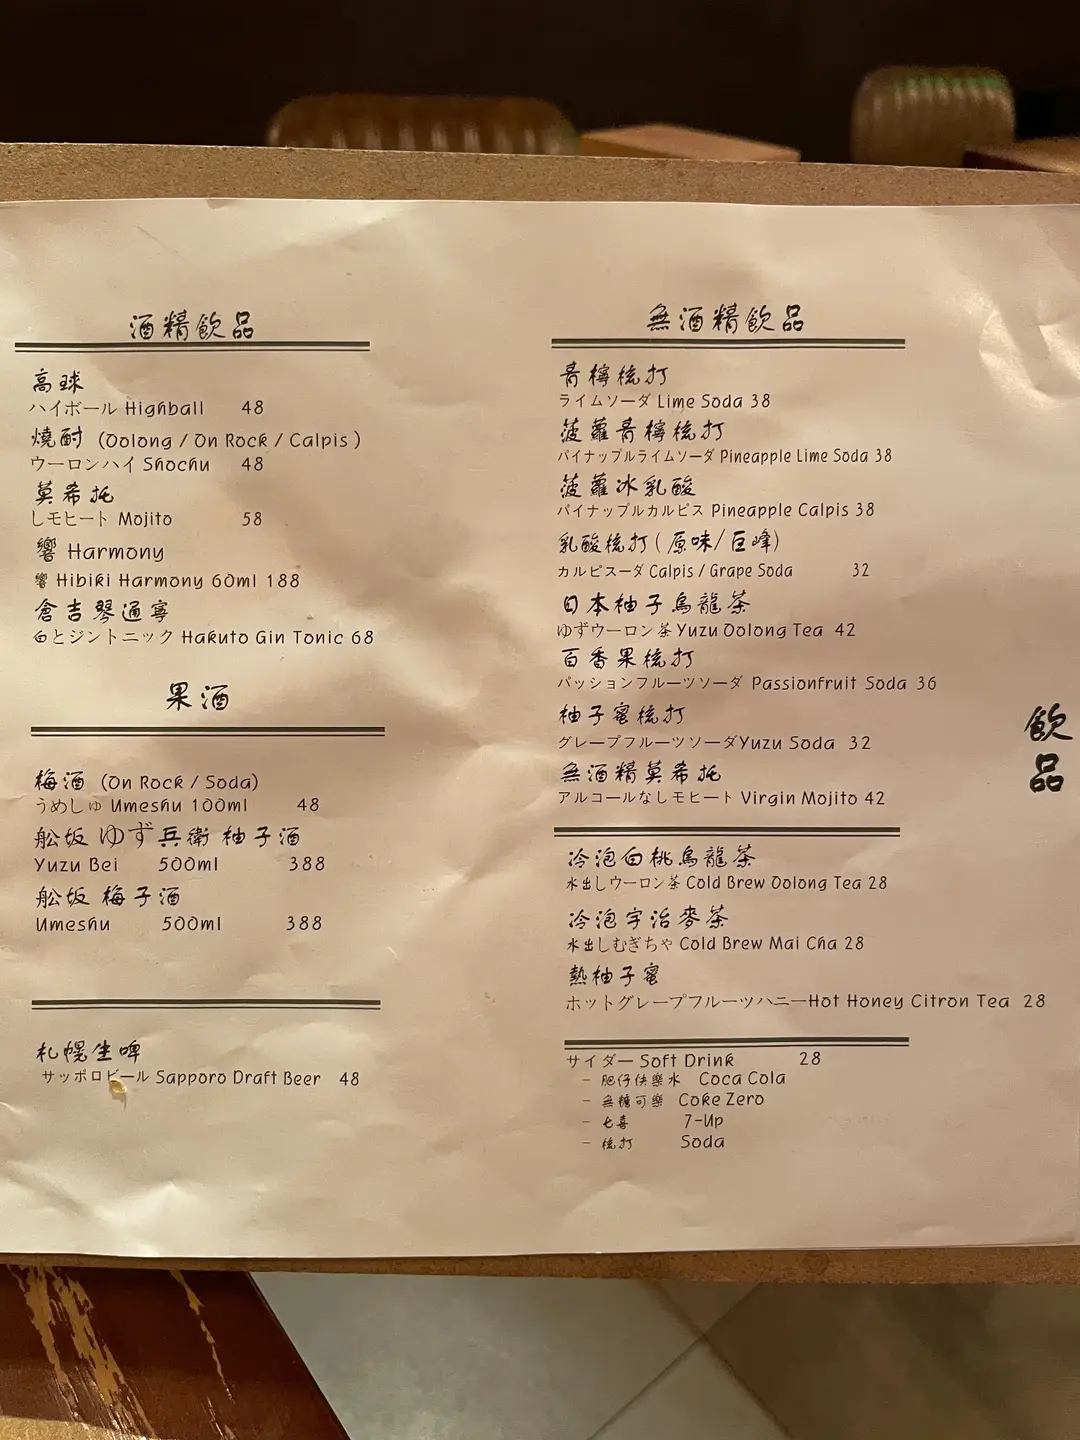 酒精飲品
高球
ハイボール Highball 48
燒酎 (Oolong / On Rock / Calpis )
ウーロンハイ Shochu 48
莫希托
しモヒート Mojito 58
響 Harmony
響 Hibiki Harmony 60ml 188
倉吉琴通寧
白とジントニック Hakuto Gin Tonic 68
果酒
梅酒 (On Rock / Soda)
うめしゅ Umeshu 100ml 48
舩坂 ゆず兵衛 柚子酒
Yuzu Bei 500ml 388
舩坂 梅子酒
Umeshu 500ml 388
札幌生啤
サッポロビール Sapporo Draft Beer 48
無酒精飲品
青檸梳打
ライムソーダ Lime Soda 38
菠蘿青檸梳打
パイナップルライムソーダ Pineapple Lime Soda 38
菠蘿冰乳酸
パイナップルカルピス Pineapple Calpis 38
乳酸梳打 ( 原味/巨峰)
カルピスーダ Calpis / Grape Soda 32
日本柚子烏龍茶
ゆずウーロン茶 Yuzu Oolong Tea 42
百香果梳打
パッションフルーツソーダ Passionfruit Soda 36
柚子蜜梳打
グレープフルーツソーダYuzu Soda 32
無酒精莫希托
アルコールなしモヒート Virgin Mojito 42
冷泡白桃烏龍茶
水出しウーロン茶 Cold Brew Oolong Tea 28
冷泡宇治麥茶
水出しむぎちゃ Cold Brew Mai Cha 28
熱柚子蜜
ホットグレープフルーツハニーHot Honey Citron Tea 28
サイダー Soft Drink 28
- 肥仔快樂水 Coca Cola
- 無糖可樂 Coke Zero
- 七喜 7-Up
- 梳打 Soda
飲品